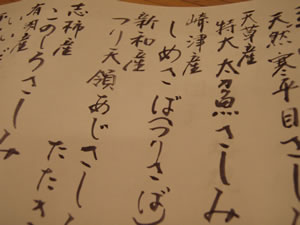 天然寒平目さし
天草産
特大太刀魚さしみ
崎津産
しめさば(つりさば)
新和産
つり天領あじさし
たたき
志柿産
このしろさしみ
有明産